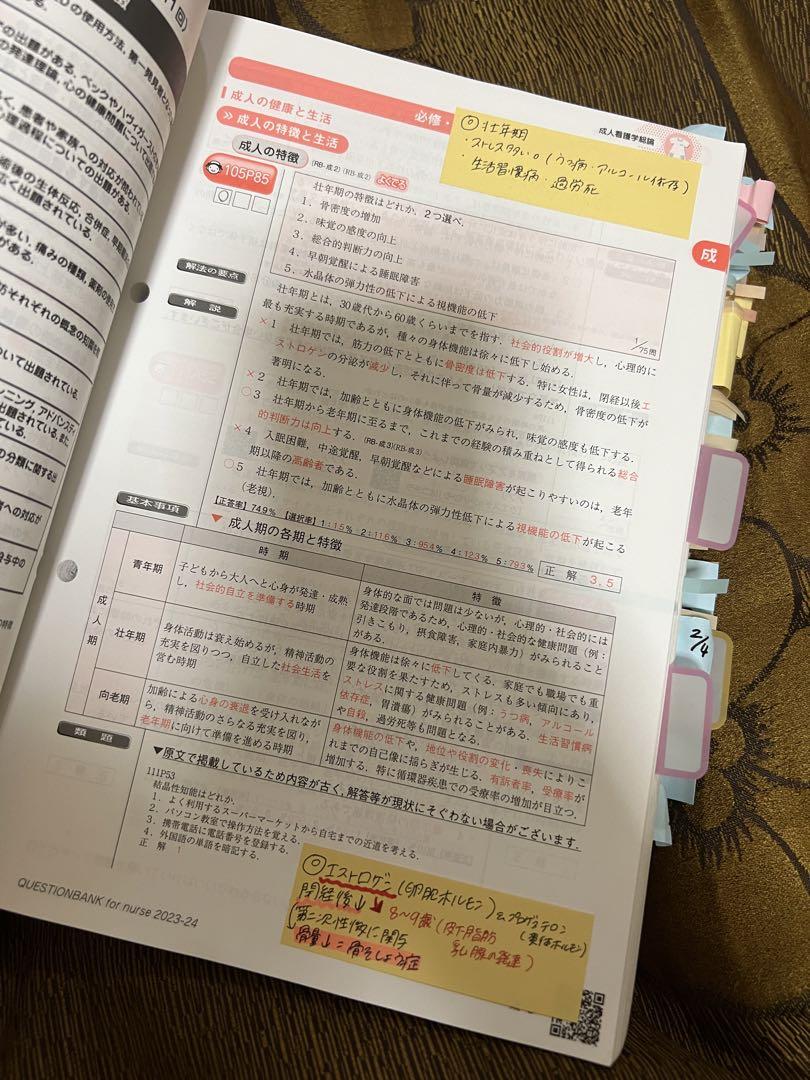 成人の健康と生活
必修・
成人看護学総論
成人の特徴と生活
成人の特徴 (RB-成2)(RB-成2) よくでる
105P85
◎壮年期
・ストレス多い。(うつ病・アルコール依存)
・生活習慣病・過労死
成
壮年期の特徴はどれか．2つ選べ．
1．骨密度の増加
2．味覚の感度の向上
3．総合的判断力の向上
4．早朝覚醒による睡眠障害
5．水晶体の弾力性の低下による視機能の低下
1/75問
解法の要点
壮年期とは，30歳代から60歳くらいまでを指す．社会的役割が増大し，心理的に
最も充実する時期であるが，種々の身体機能は徐々に低下し始める．
解説
×1 壮年期では，筋力の低下とともに骨密度は低下する．特に女性は，閉経以後エ
ストロゲンの分泌が減少し，それに伴って骨量が減少するため，骨密度の低下が
著明になる．
×2 壮年期では，加齢とともに身体機能の低下がみられ，味覚の感度も低下する．
○3 壮年期から老年期に至るまで，これまでの経験の積み重ねとして得られる総合
的判断力は向上する．(RB-成3)(RB-成3)
×4 入眠困難，中途覚醒，早朝覚醒などによる睡眠障害が起こりやすいのは，老年
期以降の高齢者である．
○5 壮年期では，加齢とともに水晶体の弾力性低下による視機能の低下が起こる
(老視)．
【正答率】74.9％ 【選択率】1：1.5％ 2：11.6％ 3：95.4％ 4：12.3％ 5：79.3％
正解 3，5
基本事項
▼成人期の各期と特徴
時期 特徴
成人期
青年期
子どもから大人へと心身が発達・成熟
し，社会的自立を準備する時期
身体的な面では問題は少ないが，心理的・社会的には
発達段階であるため，心理的・社会的な健康問題（例：
引きこもり，摂食障害，家庭内暴力）がみられること
がある．
壮年期
身体活動は衰え始めるが，精神活動の
充実を図りつつ，自立した社会生活を
営む時期
身体機能は徐々に低下してくる．家庭でも職場でも重
要な役割を果たすため，ストレスも多い傾向にあり，
ストレスに関する健康問題（例：うつ病，アルコール
依存症，胃潰瘍）がみられることがある．生活習慣病
や自殺，過労死等も問題となる．
向老期
加齢による心身の衰退を受け入れなが
ら，精神活動のさらなる充実を図り，
老年期に向けて準備を進める時期
身体機能の低下や，地位や役割の変化・喪失によりこ
れまでの自己像に揺らぎが生じる．有訴者率，受療率が
増加する．特に循環器疾患での受療率の増加が目立つ．
2/4
類題
▼原文で掲載しているため内容が古く，解答等が現状にそぐわない場合がございます．
111P53
結晶性知能はどれか．
1．よく利用するスーパーマーケットから自宅までの近道を考える．
2．パソコン教室で操作方法を覚える．
3．携帯電話に電話番号を登録する．
4．外国語の単語を暗記する．
正解 1
◎エストロゲン(卵胞ホルモン)&プロゲステロン
(黄体ホルモン)
閉経後↓ 8〜9歳(皮下脂肪
乳腺の発達)
(第二次性徴に関与
骨量↓=骨そしょう症
QUESTIONBANK for nurse 2023-24